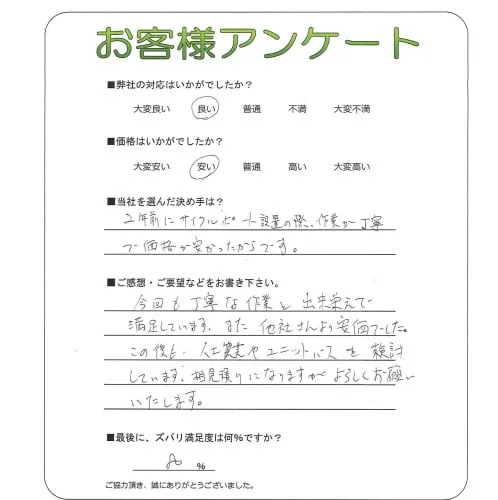 お客様アンケート
■弊社の対応はいかがでしたか？
大変良い 良い 普通 不満 大変不満
■価格はいかがでしたか？
大変安い 安い 普通 高い 大変高い
■当社を選んだ決め手は？
2年前にサイクルポート設置の際、作業が丁寧
で価格が安かったからです。
■ご感想・ご要望などをお書き下さい。
今回も丁寧な作業と出来栄えで
満足しています。また他社さんより安価でした。
この後も、人工芝やユニットバスを検討
しています。相見積りになりますがよろしくお願い
いたします。
■最後に、ズバリ満足度は何%ですか？
%
ご協力頂き、誠にありがとうございました。